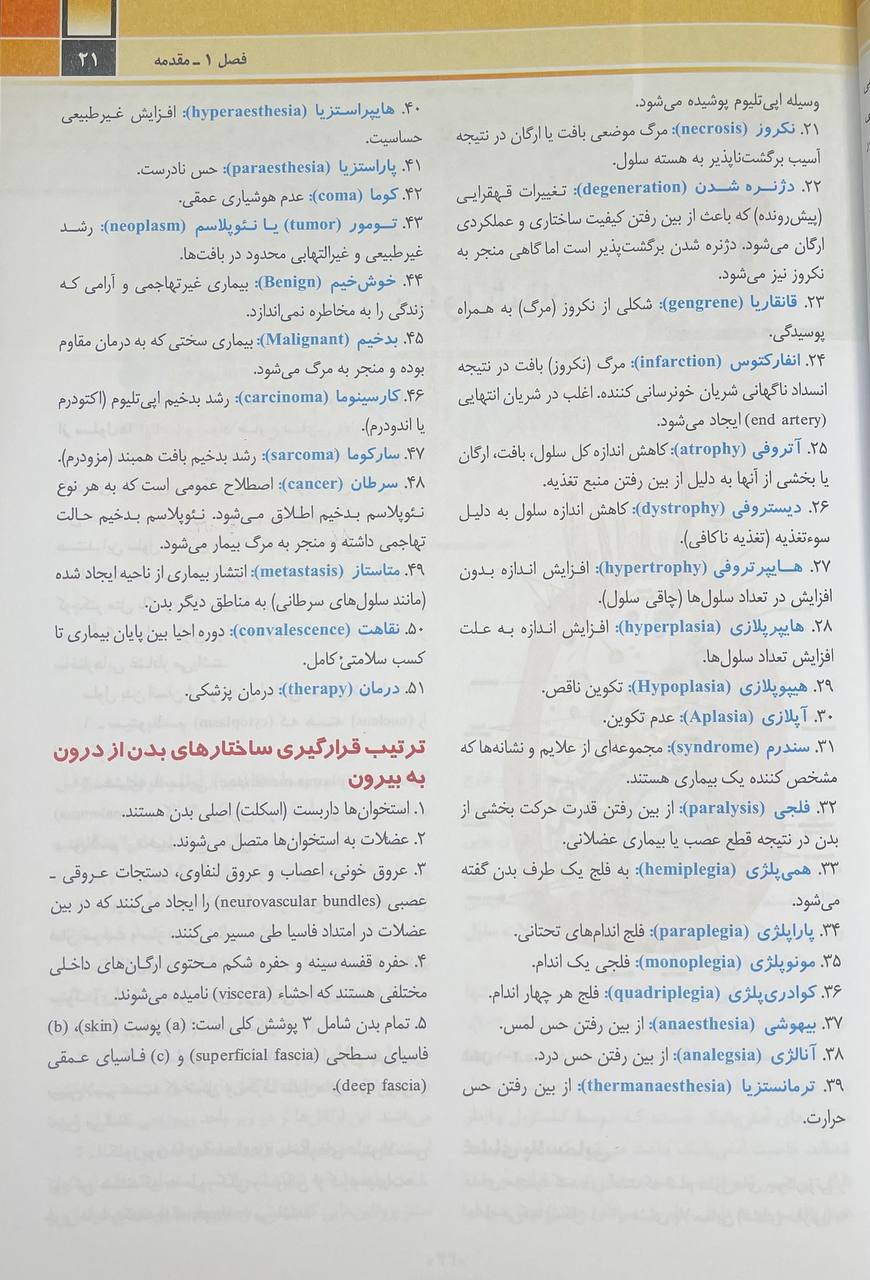 ۲۱
فصل ۱ ـ مقدمه
وسیله اپی‌تلیوم پوشیده می‌شود.
۲۱. نکروز (necrosis): مرگ موضعی بافت یا ارگان در نتیجه
آسیب برگشت‌ناپذیر به هسته سلول.
۲۲. دژنره شدن (degeneration): تغییرات قهقرایی
(پیش‌رونده) که باعث از بین رفتن کیفیت ساختاری و عملکردی
ارگان می‌شود. دژنره شدن برگشت‌پذیر است اما گاهی منجر به
نکروز نیز می‌شود.
۲۳. قانقاریا (gengrene): شکلی از نکروز (مرگ) به همراه
پوسیدگی.
۲۴. انفارکتوس (infarction): مرگ (نکروز) بافت در نتیجه
انسداد ناگهانی شریان خونرسانی کننده. اغلب در شریان انتهایی
(end artery) ایجاد می‌شود.
۲۵. آتروفی (atrophy): کاهش اندازه کل سلول، بافت، ارگان
یا بخشی از آنها به دلیل از بین رفتن منبع تغذیه.
۲۶. دیستروفی (dystrophy): کاهش اندازه سلول به دلیل
سوءتغذیه (تغذیه ناکافی).
۲۷. هایپرتروفی (hypertrophy): افزایش اندازه بدون
افزایش در تعداد سلول‌ها (چاقی سلول).
۲۸. هایپرپلازی (hyperplasia): افزایش اندازه به علت
افزایش تعداد سلول‌ها.
۲۹. هیپوپلازی (Hypoplasia): تکوین ناقص.
۳۰. آپلازی (Aplasia): عدم تکوین.
۳۱. سندرم (syndrome): مجموعه‌ای از علایم و نشانه‌ها که
مشخص کننده یک بیماری هستند.
۳۲. فلجی (paralysis): از بین رفتن قدرت حرکت بخشی از
بدن در نتیجه قطع عصب یا بیماری عضلانی.
۳۳. همی‌پلژی (hemiplegia): به فلج یک طرف بدن گفته
می‌شود.
۳۴. پاراپلژی (paraplegia): فلج اندام‌های تحتانی.
۳۵. مونوپلژی (monoplegia): فلجی یک اندام.
۳۶. کوادری‌پلژی (quadriplegia): فلج هر چهار اندام.
۳۷. بیهوشی (anaesthesia): از بین رفتن حس لمس.
۳۸. آنالژی (analegsia): از بین رفتن حس درد.
۳۹. ترمانستزیا (thermanaesthesia): از بین رفتن حس
حرارت.
۴۰. هایپراستزیا (hyperaesthesia): افزایش غیرطبیعی
حساسیت.
۴۱. پاراستزیا (paraesthesia): حس نادرست.
۴۲. کوما (coma): عدم هوشیاری عمقی.
۴۳. تومور (tumor) یا نئوپلاسم (neoplasm): رشد
غیرطبیعی و غیرالتهابی محدود در بافت‌ها.
۴۴. خوش‌خیم (Benign): بیماری غیرتهاجمی و آرامی که
زندگی را به مخاطره نمی‌اندازد.
۴۵. بدخیم (Malignant): بیماری سختی که به درمان مقاوم
بوده و منجر به مرگ می‌شود.
۴۶. کارسینوما (carcinoma): رشد بدخیم اپی‌تلیوم (اکتودرم
یا اندودرم).
۴۷. سارکوما (sarcoma): رشد بدخیم بافت همبند (مزودرم).
۴۸. سرطان (cancer): اصطلاح عمومی است که به هر نوع
نئوپلاسم بدخیم اطلاق می‌شود. نئوپلاسم بدخیم حالت
تهاجمی داشته و منجر به مرگ بیمار می‌شود.
۴۹. متاستاز (metastasis): انتشار بیماری از ناحیه ایجاد شده
(مانند سلول‌های سرطانی) به مناطق دیگر بدن.
۵۰. نقاهت (convalescence): دوره احیا بین پایان بیماری تا
کسب سلامتی کامل.
۵۱. درمان (therapy): درمان پزشکی.
ترتیب قرارگیری ساختارهای بدن از درون
به بیرون
۱. استخوان‌ها داربست (اسکلت) اصلی بدن هستند.
۲. عضلات به استخوان‌ها متصل می‌شوند.
۳. عروق خونی، اعصاب و عروق لنفاوی، دستجات عروقی ـ
عصبی (neurovascular bundles) را ایجاد می‌کنند که در بین
عضلات در امتداد فاسیا طی مسیر می‌کنند.
۴. حفره قفسه سینه و حفره شکم محتوی ارگان‌های داخلی
مختلفی هستند که احشاء (viscera) نامیده می‌شوند.
۵. تمام بدن شامل ۳ پوشش کلی است: (a) پوست (skin)، (b)
فاسیای سطحی (superficial fascia) و (c) فاسیای عمقی
(deep fascia).